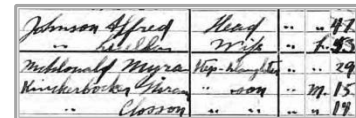 Johnson Alfred Head " " 47
" Wife " F. 53
McDonald Myra Step-daughter " " 29
Knickerbocker Hiram " son " M. 15
" Closson " " " " 19